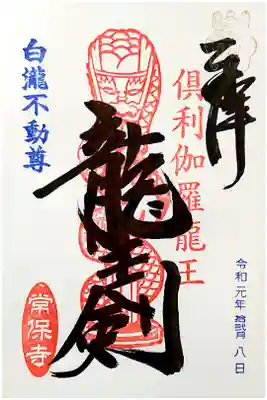 奉拝
倶利伽羅龍王
龍王剣
白瀧不動尊
常保寺
令和元年拾弐月八日